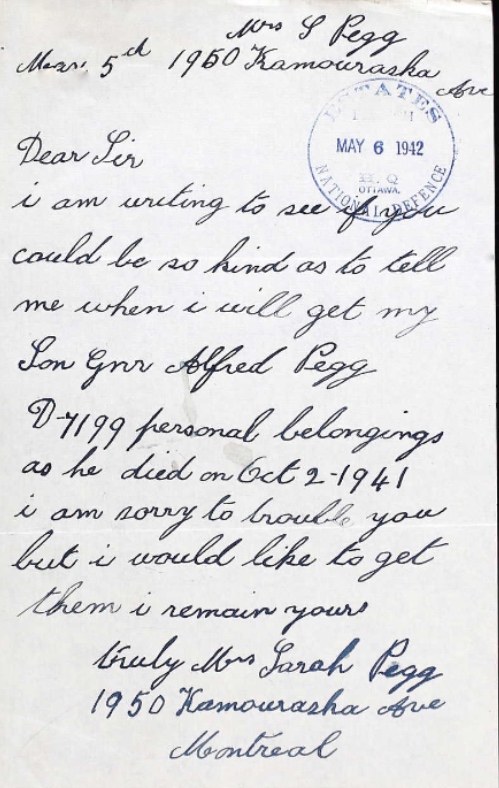 Mrs S Pegg
Mar. 5th 1950 Kamouraska
Ave
ESTATES
MAY 6 1942
H. Q
OTTAWA.
NATIONAL DEFENCE
Dear Sir
i am writing to see if you
could be so kind as to tell
me when i will get my
Son Gnr Alfred Pegg
D-7199 personal belongings
as he died on Oct 2-1941
i am sorry to trouble you
but i would like to get
them i remain yours
truly Mrs Sarah Pegg
1950 Kamouraska Ave
Montreal